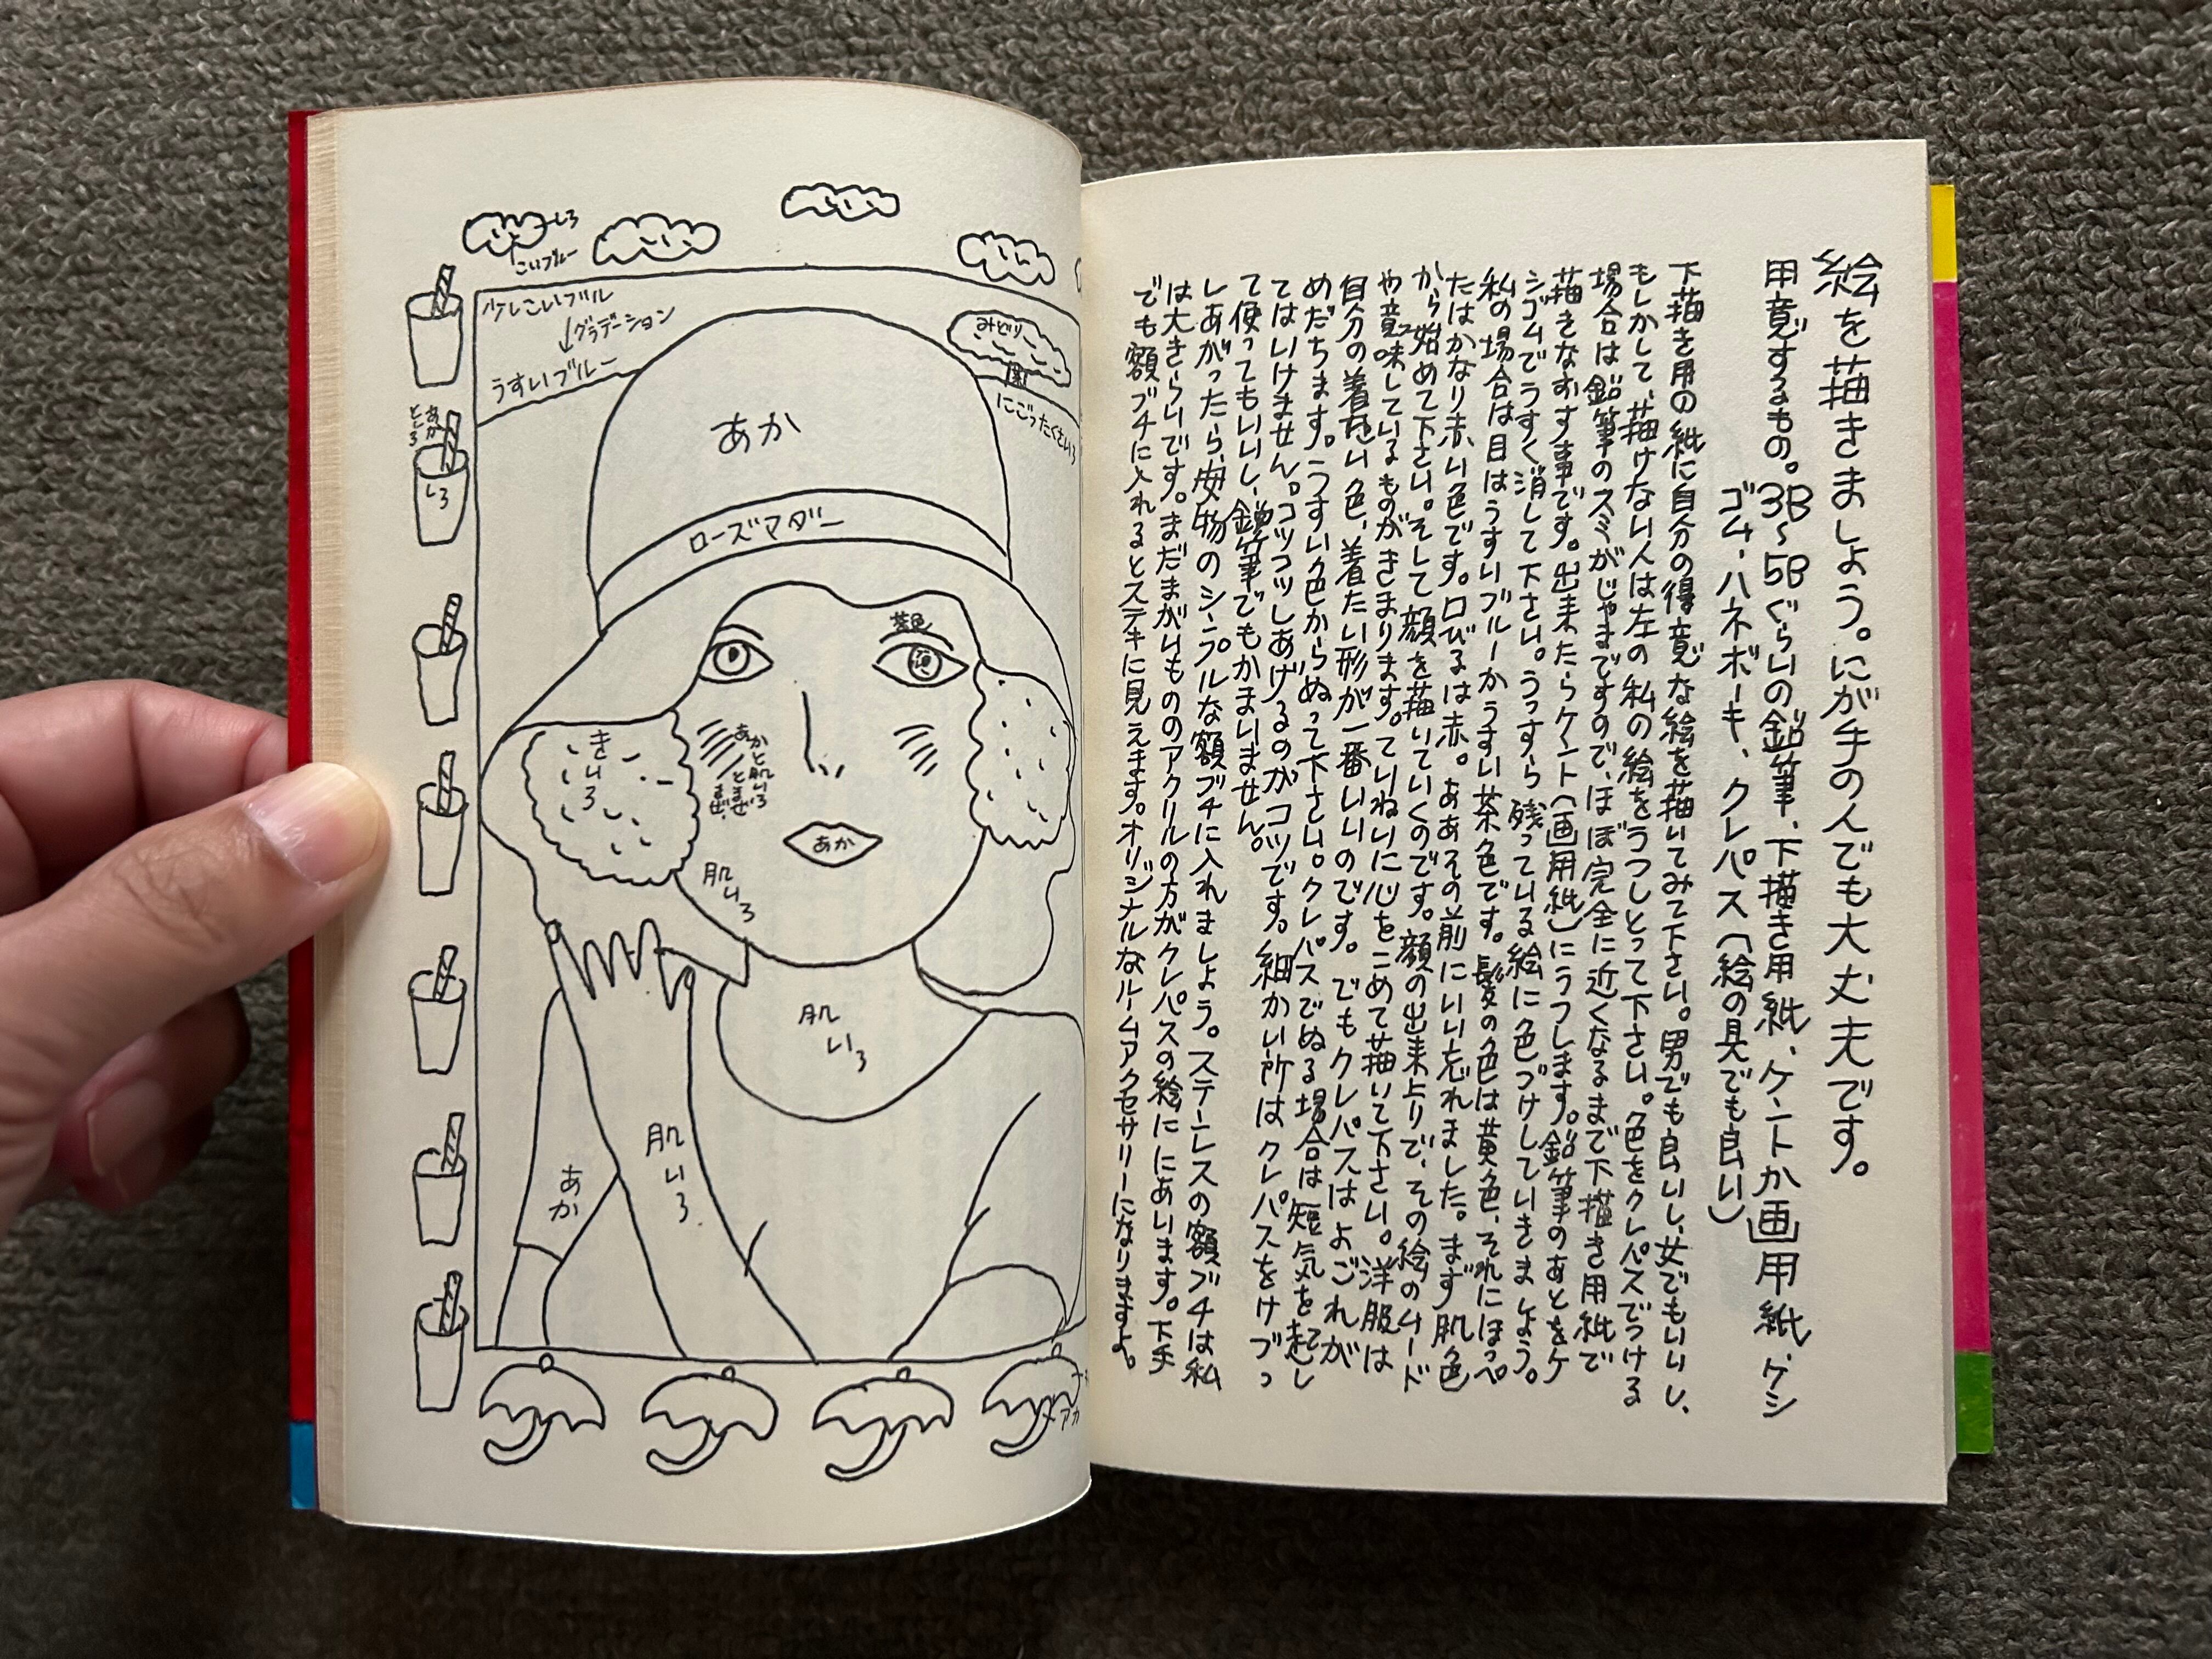 絵を描きましょう。にが手の人でも大丈夫です。
用意するもの。3B〜5Bぐらいの鉛筆、下描き用紙、ケントか画用紙、ケシ
ゴム・ハネボーキ、クレパス(絵の具でも良い)
下描き用の紙に自分の得意な絵を描いてみて下さい。男でも良いし、女でもいいし、
もしかして、描けない人は左の私の絵をうつしとって下さい。色をクレパスでつける
場合は鉛筆のスミがじゃまですので、ほぼ完全に近くなるまで下描き用紙で
描きなおす事です。出来たらケント(画用紙)にうつします。鉛筆のあとをケ
シゴムでうすく消して下さい。うっすら残っている絵に色づけしていきましょう。
私の場合は目はうすいブルーかうすい茶色です。髪の色は黄色、それにほっぺ
たはかなり赤い色です。口びるは赤。ああその前にいい忘れました。まず肌色
から始めて下さい。そして顔を描いていくのです。顔の出来上りで、その絵のムード
や意味しているものがきまります。ていねいに心をこめて描いて下さい。洋服は
自分の着たい色、着たい形が一番いいのです。でもクレパスはよごれが
めだちます。うすい色からぬって下さい。クレパスでぬる場合は短気を起し
てはいけません。コツコツしあげるのがコツです。細かい所はクレパスをけづっ
て使ってもいいし、鉛筆でもかまいません。
しあがったら、安物のシンプルな額ブチに入れましょう。ステーンレスの額ブチは私
は大きらいです。まだまがいもののアクリルの方がクレパスの絵ににあいます。下手
でも額ブチに入れるとステキに見えます。オリジナルなルームアクセサリーになりますよ。
しろ
こいブルー
少しこいブルー
グラデーション
うすいブルー
みどり
にごったくさいろ
あか
としろ
しろ
あか
ローズマダー
茶色
きいろ
あかと肌いろ
とまぜ
まぜ
あか
肌いろ
肌いろ
肌いろ
あか